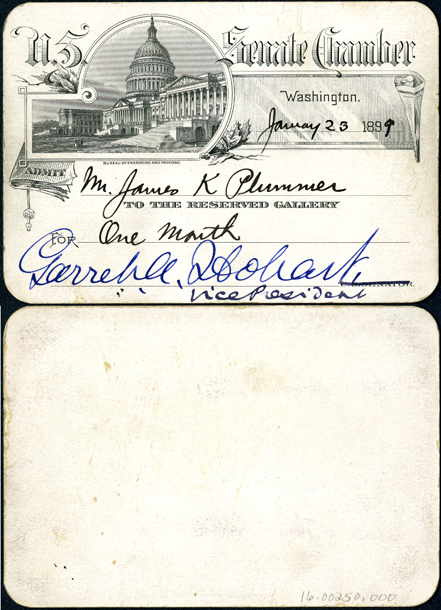 U.S. Senate Chamber
Washington,
January 23 1899
BUREAU OF ENGRAVING AND PRINTING.
ADMIT
Mr. James K Plummer
TO THE RESERVED GALLERY
FOR One Month
Garret A. Hobart.
Vice President
16-00250,000